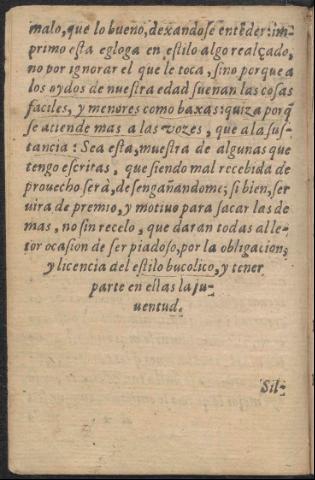 malo, que lo bueno, dexandose entẽder: im-
primo esta egloga en estilo algo realçado,
no por ignorar el que le toca, sino porque a
los oydos de nuestra edad suenan las cosas
faciles, y menores como baxas: quiza porq̃
se atiende mas a las vozes, que a la sus-
tancia: Sea esta, muestra de algunas que
tengo escritas, que siendo mal recebida de
prouecho serà, desengañandome; si bien, ser
uira de premio, y motiuo para sacar las de
mas, no sin recelo, que daran todas al le-
tor ocasion de ser piadoso, por la obligacion;
y licencia del estilo bucolico, y tener
parte en estas la ju-
uentud.
Sil-